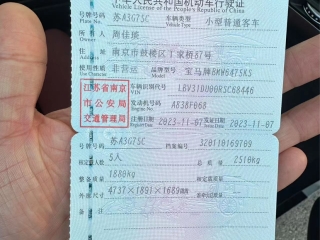 中华人民共和国机动车行驶证
Vehicle License of the People's Republic of China
号牌号码 苏A3G75C 车辆类型 小型普通客车
Plate No. Vehicle Type
所有人 周佳能
Owner
住址 南京市鼓楼区丁家桥87号
Address
使用性质 非营运 品牌型号 宝马牌BMW6475KS
Use Character Model
江苏省南京市公安局交通管理局
车辆识别代号 LBV31DU00RSC68446
VIN
发动机号码 A838F068
Engine No.
注册日期 2023-11-07 发证日期 2023-11-07
Register Date Issue Date
号牌号码 苏A3G75C 档案编号 320110169709
核定载人数 5人 总质量 2510kg
整备质量 1880kg
外廓尺寸 4737×1891×1689mm